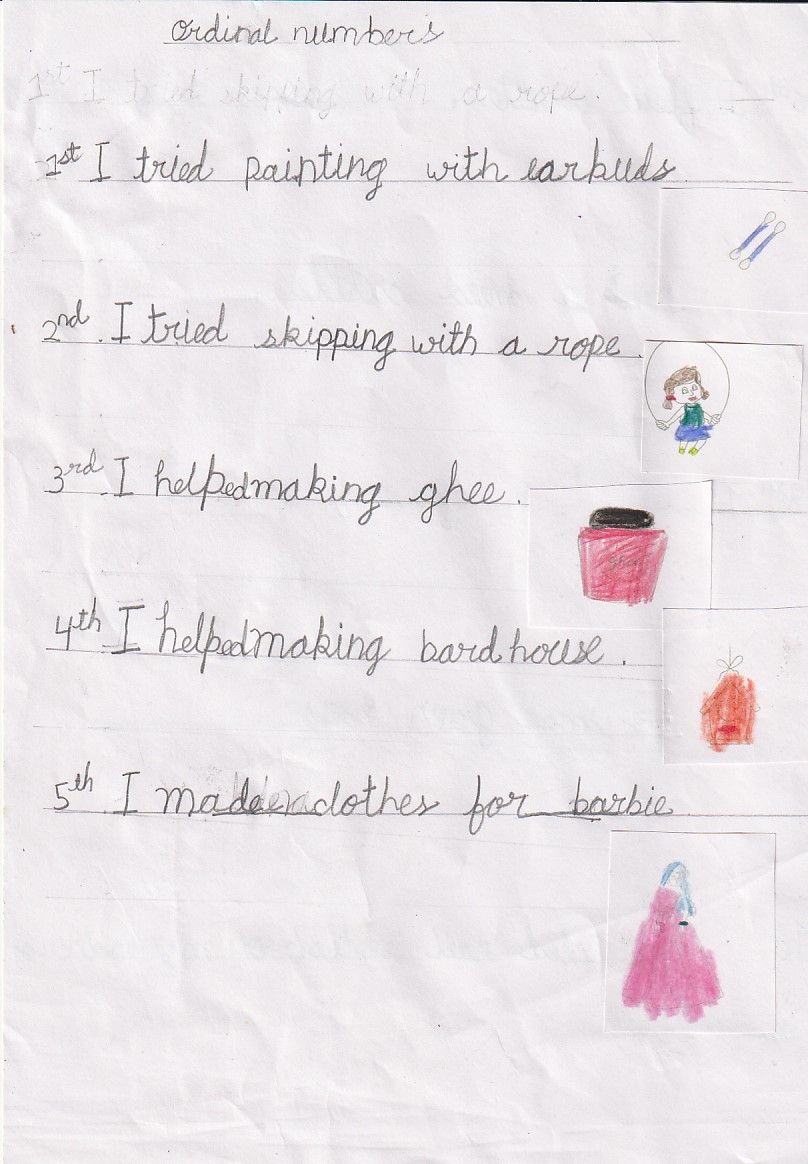 ordinal numbers
1st I tried skipping with a rope.
1st I tried painting with earbuds
2nd. I tried skipping with a rope.
3rd I helped making ghee.
4th I helped making bard house.
5th I made clothes for barbie